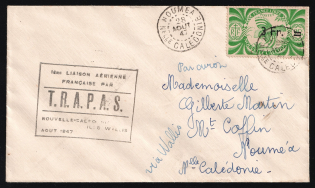 NOUMEA
28
AOUT
47
Nlle CALEDONIE
3 Fr.
1ère LIAISON AÉRIENNE
FRANÇAISE PAR
T.R.A.P.A.S.
NOUVELLE-CALÉDONIE
ILES WALLIS
AOUT 1947
Par avion
Mademoiselle
Gilberte Martin
Mt Coffin
Nouméa
Nlle Calédonie
via Wallis